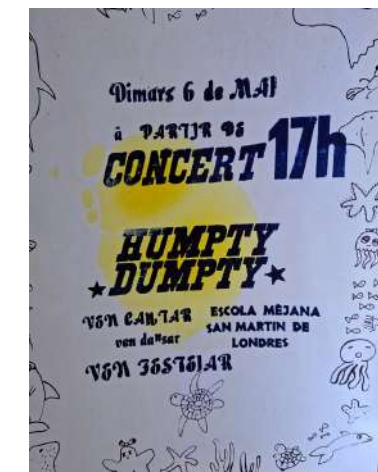 Dimars 6 de MAI
à PARTIR DE
CONCERT 17h
HUMPTY
DUMPTY
VEN CANTAR
ven dansar
VEN FESTEJAR
ESCOLA MÈJANA
SAN MARTIN DE
LONDRES